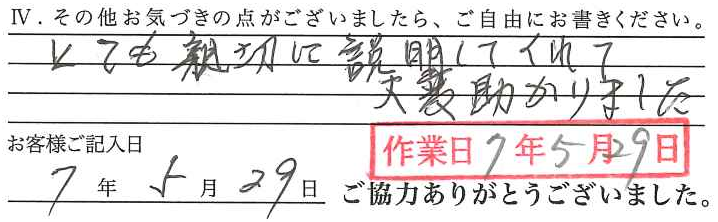 Ⅳ．その他お気づきの点がございましたら、ご自由にお書きください。
とても親切に説明してくれて
大変助かりました
お客様ご記入日
作業日 7年5月29日
7年5月29日
ご協力ありがとうございました。